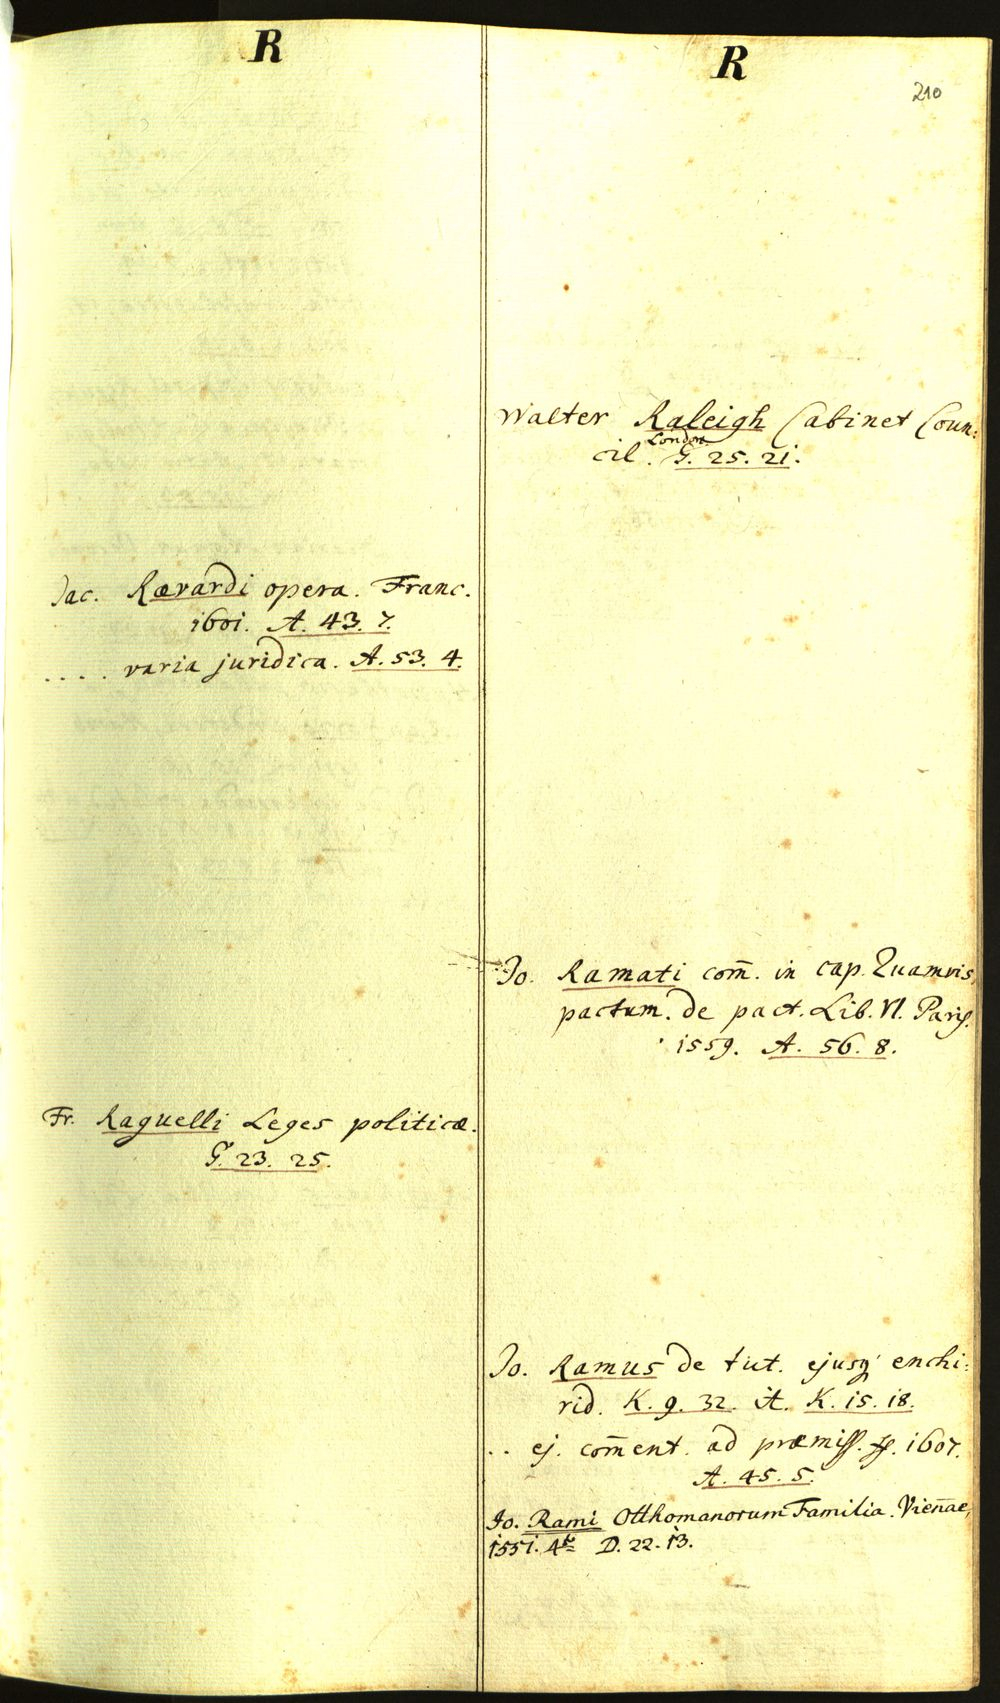 R
Jac. Rævardi opera. Franc.
1601. A. 43. 7.
. . . . varia juridica. A. 53. 4.
Fr. Raguelli Leges politicæ.
G. 23. 25.
R
210
Walter Raleigh Cabinet Coun:
cil. London G. 25. 21.
Jo. Ramati com̄. in cap. Quamvis
pactum. de pact. Lib. VI. Paris.
1559. A. 56. 8.
Jo. Ramus de tut. ejusq' enchi:
rid. K. 9. 32. it. K. 15. 18.
. . ej. com̄ent. ad præmiss. ff. 1607.
A. 45. 5.
Jo. Rami Otthomanorum Familia. Vien̄ae,
1551. 4to D. 22. 13.